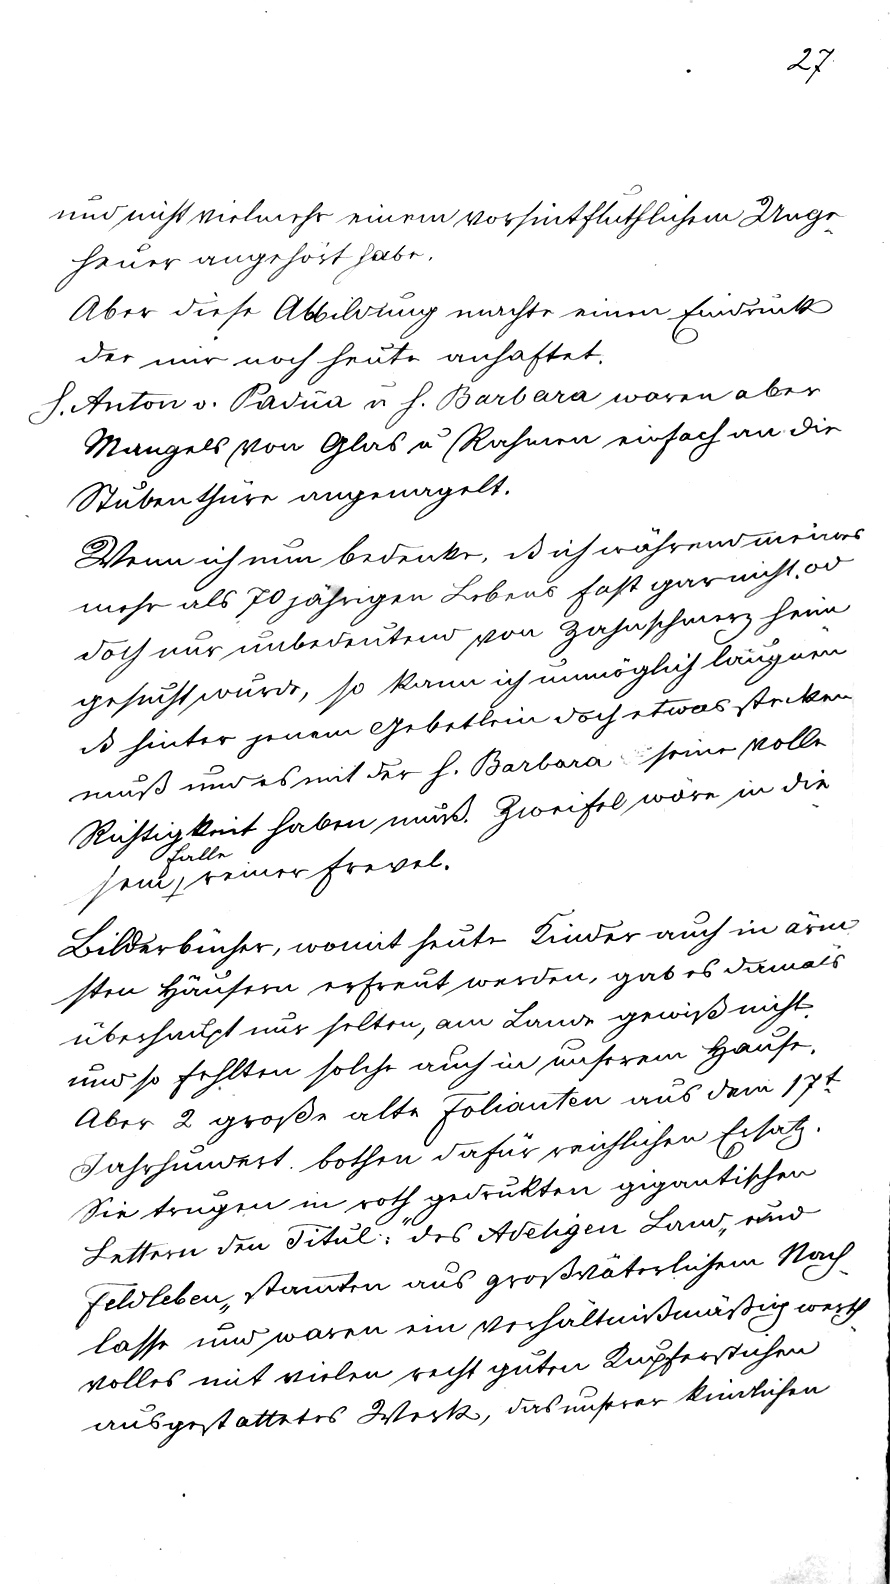 27
und nicht vielmehr einem vorsintfluthlichem Unge-
heuer angehört habe.
Aber diese Abbildung machte einen Eindruck
der mir noch heute anhaftet.
h. Anton v. Padua u h. Barbara waren aber
Mangels von Glas u Rahmen einfach an die
Stubenthüre angenagelt.
Wenn ich nun bedenke, ß ich während meines
mehr als 70 jährigen Lebens fast gar nicht od
doch nur unbedeutend von Zahnschmerz heim
gesucht wurde, so kann ich unmöglich läugnen
ß hinter jenem Gebetlein doch etwas stecken
muß und es mit der h. Barbara seine volle
Richtigkeit haben muß. Zweifel wäre in die-
sem falle reiner Frevel.
Bilderbücher, womit heute Kinder auch in ärm
sten Häusern erfreut werden, gab es damals
überhaupt nur selten, am Lande gewiß nicht
und so fehlten solche auch in unserem Hause.
Aber 2 große alte Folianten aus dem 17t
Jahrhundert bothen dafür reichlichen Ersatz.
Sie trugen in roth gedrukten gigantischen
Lettern den Titul: "des Adeligen Land, und
Feldleben„ stam̅ten aus großväterlichem Nach-
lasse und waren ein verhältnißmäßig werth
volles mit vielen recht guten Kupferstichen
ausgestattetes Werk, das unserer kindlichen